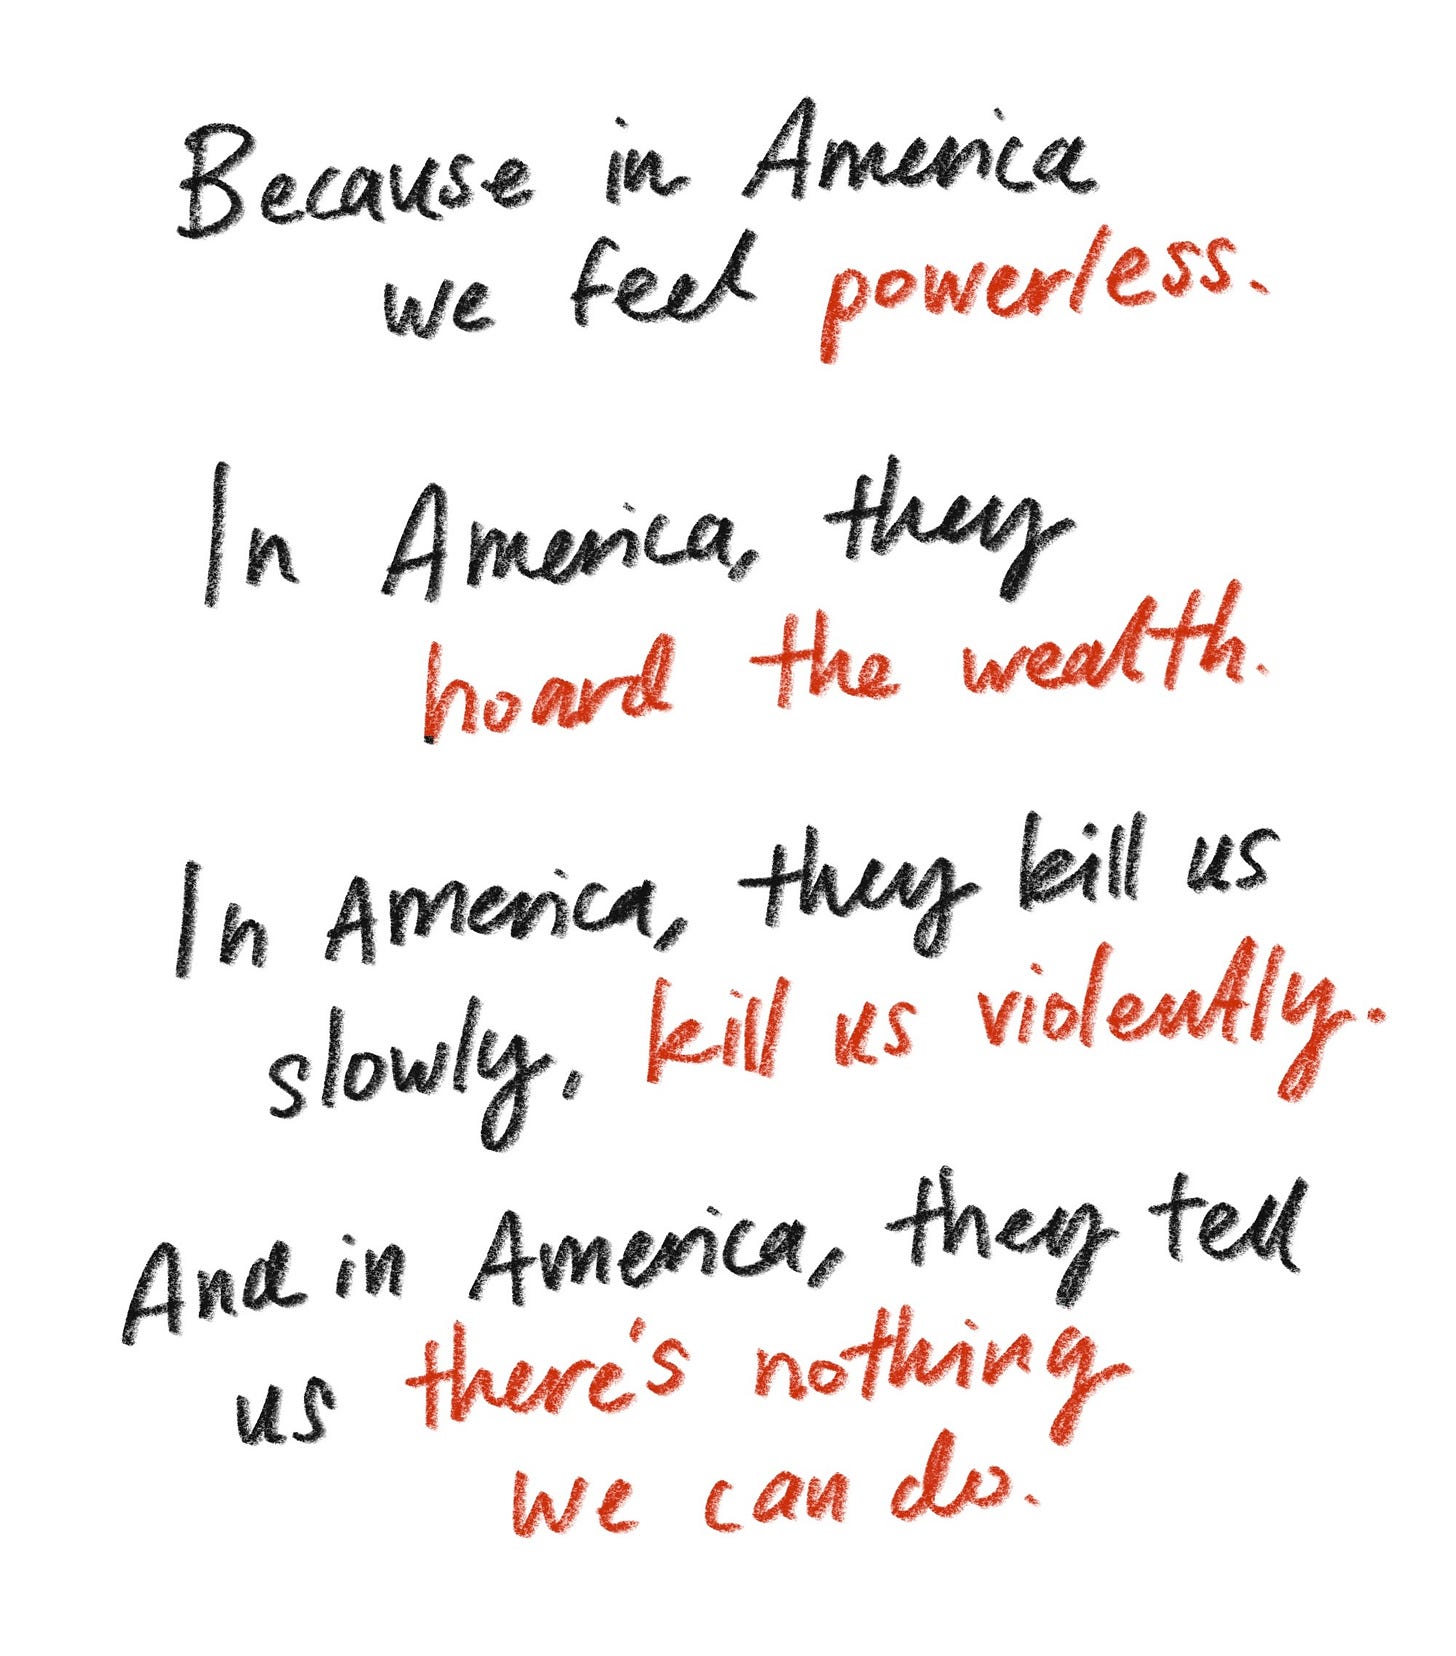 Because in America
we feel powerless.
In America, they
hoard the wealth.
In America, they kill us
slowly, kill us violently.
And in America, they tell
us there's nothing
we can do.